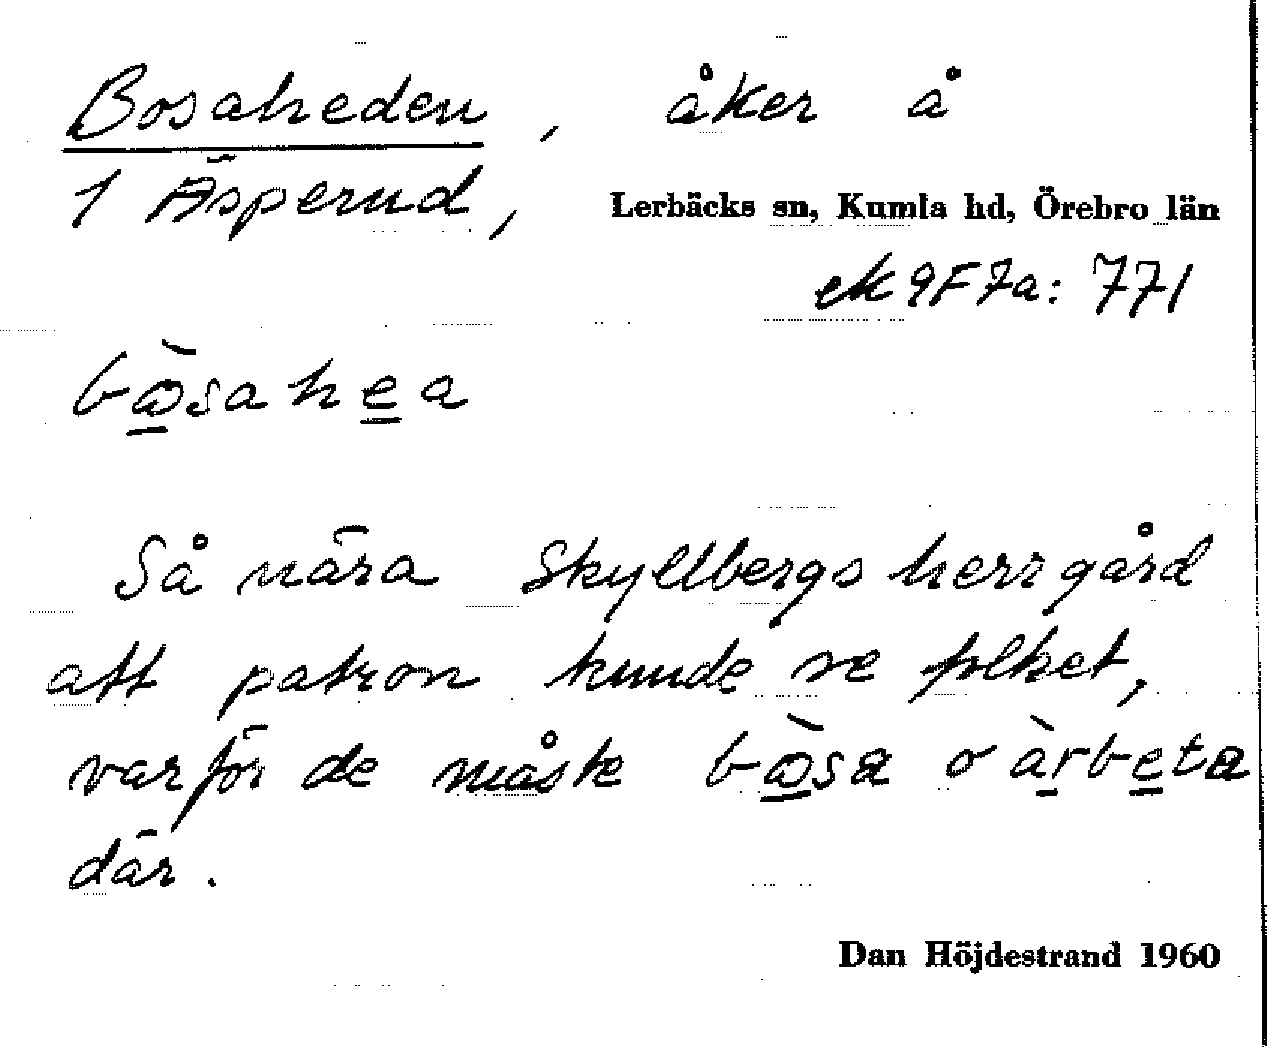 Bosaheden, åker å
1 Äsperud, Lerbäcks sn, Kumla hd, Örebro län
ek 9F7a: 771
bò̲sahe̲a
Så nära Skyllbergs herrgård
att patron kunde se folket,
varför de måste bò̲sa o àr̲be̲ta
där.
Dan Höjdestrand 1960